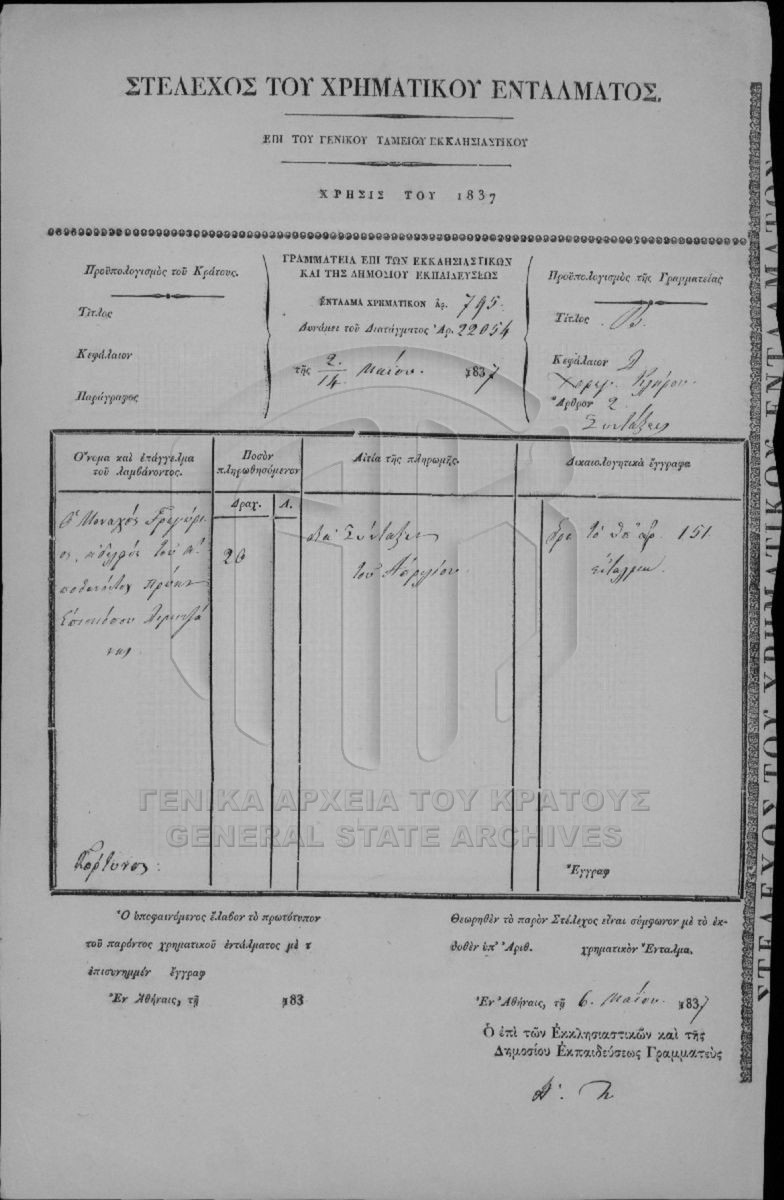 ΣΤΕΛΕΧΟΣ ΤΟΥ ΧΡΗΜΑΤΙΚΟΥ ΕΝΤΑΛΜΑΤΟΣ.
ΕΠΙ ΤΟΥ ΓΕΝΙΚΟΥ ΤΑΜΕΙΟΥ ΕΚΚΛΗΣΙΑΣΤΙΚΟΥ
ΧΡΗΣΙΣ ΤΟΥ 1837
Προϋπολογισμὸς τοῦ Κράτους.
Τίτλος
Κεφάλαιον
Παράγραφος
ΓΡΑΜΜΑΤΕΙΑ ΕΠΙ ΤΩΝ ΕΚΚΛΗΣΙΑΣΤΙΚΩΝ
ΚΑΙ ΤΗΣ ΔΗΜΟΣΙΟΥ ΕΚΠΑΙΔΕΥΣΕΩΣ
ΕΝΤΑΛΜΑ ΧΡΗΜΑΤΙΚΟΝ ἀρ. 795.
Δυνάμει τοῦ Διατάγματος Ἀρ. 22054
τῆς 2/14 Μαΐου. 1837
Προϋπολογισμὸς τῆς Γραμματείας
Τίτλος Β.
Κεφάλαιον
Κλήρου.
Ἄρθρον 2
Συντάξεις
Ὄνομα καὶ ἐπάγγελμα
τοῦ λαμβάνοντος.
Ποσὸν
πληρωθησόμενον
Αἰτία τῆς πληρωμῆς.
Δικαιολογητικὰ ἔγγραφα
Δραχ. Λ.
Ὁ Μοναχὸς Γρηγόρι
ος, ἀδελφὸς τοῦ ἀ
ποθανόντος πρώην
Ἐπισκόπου
20
διὰ Σύνταξιν
τοῦ Ἀπριλίου.
τὸ ὑπ' ἀρ. 151
ἔνταλμα.
Γόρτυνος
Ἔγγραφ
ΓΕΝΙΚΑ ΑΡΧΕΙΑ ΤΟΥ ΚΡΑΤΟΥΣ
GENERAL STATE ARCHIVES
Ὁ ὑποφαινόμενος ἔλαβον τὸ πρωτότυπον
τοῦ παρόντος χρηματικοῦ ἐντάλματος μὲ τ
ἐπισυνημμέν ἔγγραφ
Ἐν Ἀθήναις, τῇ 183
Θεωρηθὲν τὸ παρὸν Στέλεχος εἶναι σύμφωνον μὲ τὸ ἐκ-
δοθὲν ὑπ' Ἀριθ. χρηματικὸν Ἔνταλμα.
Ἐν Ἀθήναις, τῇ 6. Μαΐου. 1837
Ὁ ἐπὶ τῶν Ἐκκλησιαστικῶν καὶ τῆς
Δημοσίου Ἐκπαιδεύσεως Γραμματεὺς
ΣΤΕΛΕΧΟΣ ΤΟΥ ΧΡΗΜΑΤΙΚΟΥ ΕΝΤΑΛΜΑΤΟΣ